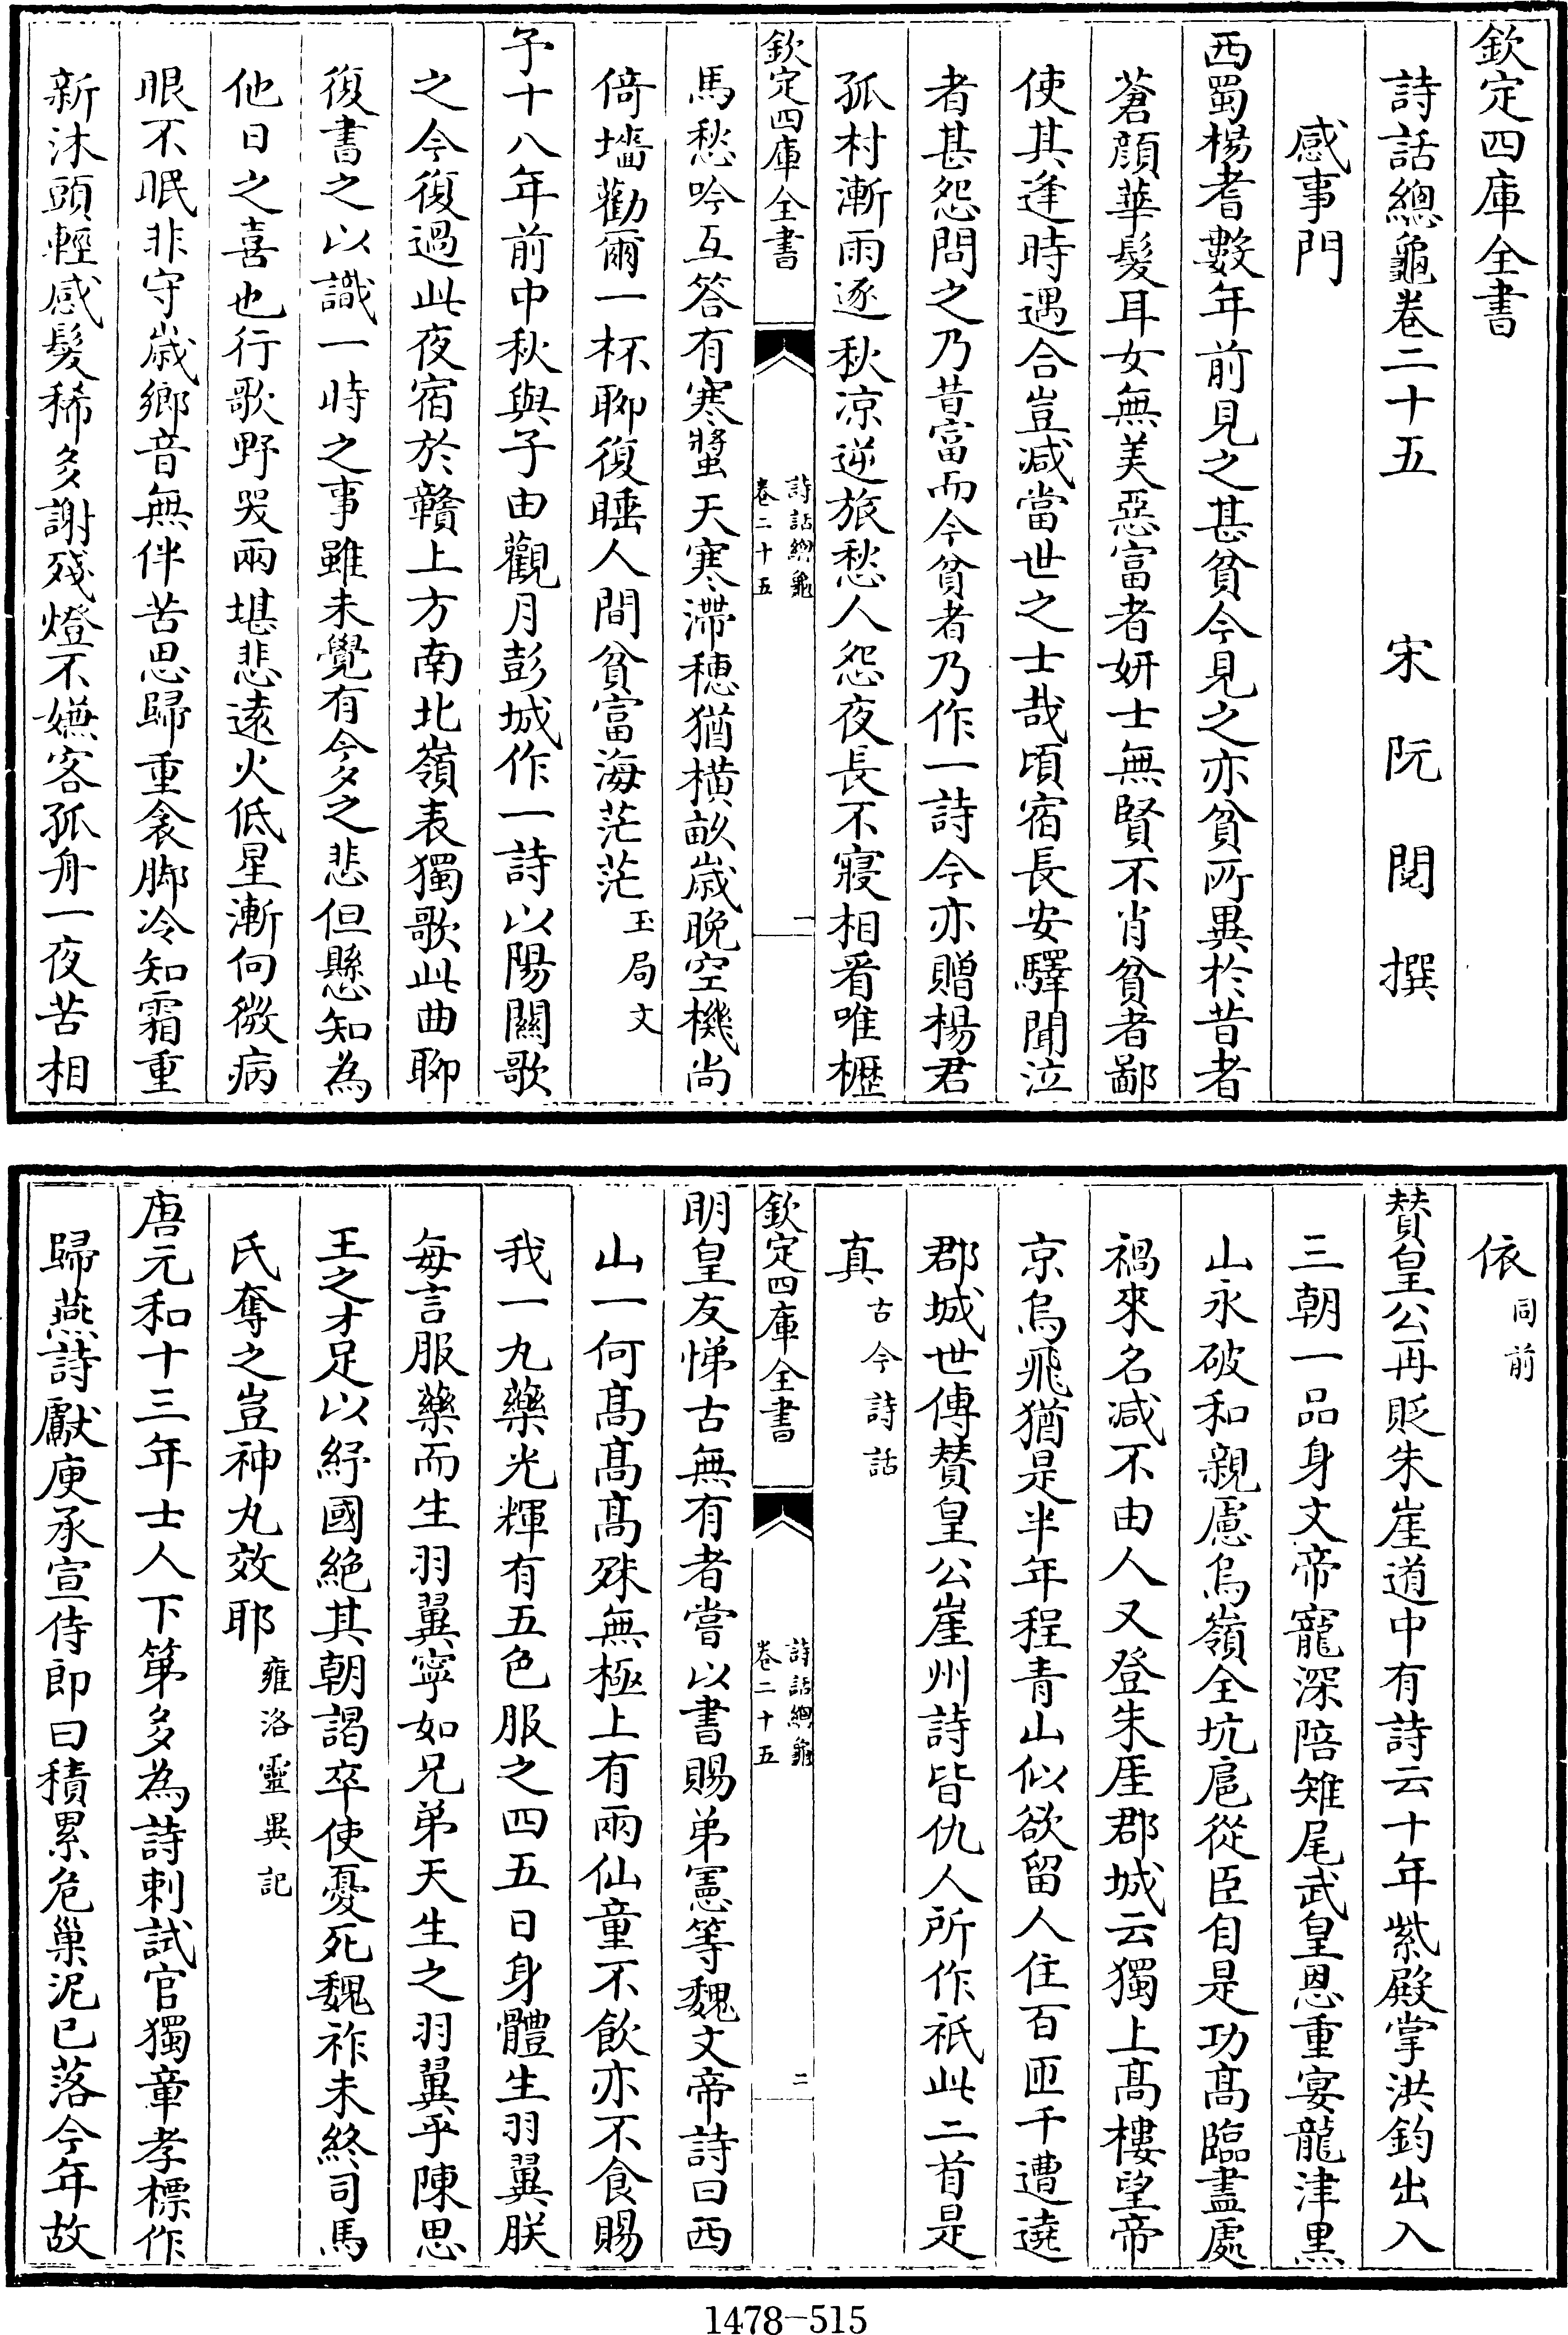 欽定四庫全書
詩話總龜卷二十五　宋　阮閱　撰
感事門
西蜀楊耆數年前見之甚貧今見之亦貧所異於昔者
蒼顔華髮耳女無美惡富者妍士無賢不肖貧者鄙
使其逢時遇合豈减當世之士哉頃宿長安驛聞泣
者甚怨問之乃昔富而今貧者乃作一詩今亦贈楊君
孤村漸雨逐秋凉逆旅愁人怨夜長不寢相看唯櫪
欽定四庫全書
詩話總龜
卷二十五
一
馬愁吟互答有寒螿天寒滯穗猶横畝歳晚空機尚
倚墻勸爾一杯聊復睡人間貧富海茫茫玉局文
予十八年前中秋與子由觀月彭城作一詩以陽關歌
之今復過此夜宿於贛上方南北嶺表獨歌此曲聊
復書之以識一時之事雖未覺有今夕之悲但懸知為
他日之喜也行歌野哭兩堪悲遠火低星漸向微病
眼不眠非守歳鄉音無伴苦思歸重衾脚冷知霜重
新沐頭輕感髮稀多謝殘燈不嫌客孤舟一夜苦相
依同前
賛皇公再貶朱崖道中有詩云十年紫殿掌洪鈞出入
三朝一品身文帝寵深陪雉尾武皇恩重宴龍津黒
山永破和親慮烏嶺全坑扈從臣自是功髙臨盡處
禍來名减不由人又登朱厓郡城云獨上髙樓望帝
京烏飛猶是半年程青山似欲留人住百匝千遭遶
郡城世傳賛皇公崖州詩皆仇人所作祇此二首是
真古今詩話
欽定四庫全書
詩話總龜
卷二十五
二
明皇友悌古無有者嘗以書賜弟憲等魏文帝詩曰西
山一何髙髙髙殊無極上有兩仙童不飲亦不食賜
我一九藥光輝有五色服之四五日身體生羽翼朕
每言服藥而生羽翼寧如兄弟天生之羽翼乎陳思
王之才足以紓國絶其朝謁卒使憂死魏祚未終司馬
氏奪之豈神丸效耶雍洛靈異記
唐元和十三年士人下第多為詩刺試官獨章孝標作
歸燕詩獻庾承宣侍郎曰積累危巢泥已落今年故
1478-515